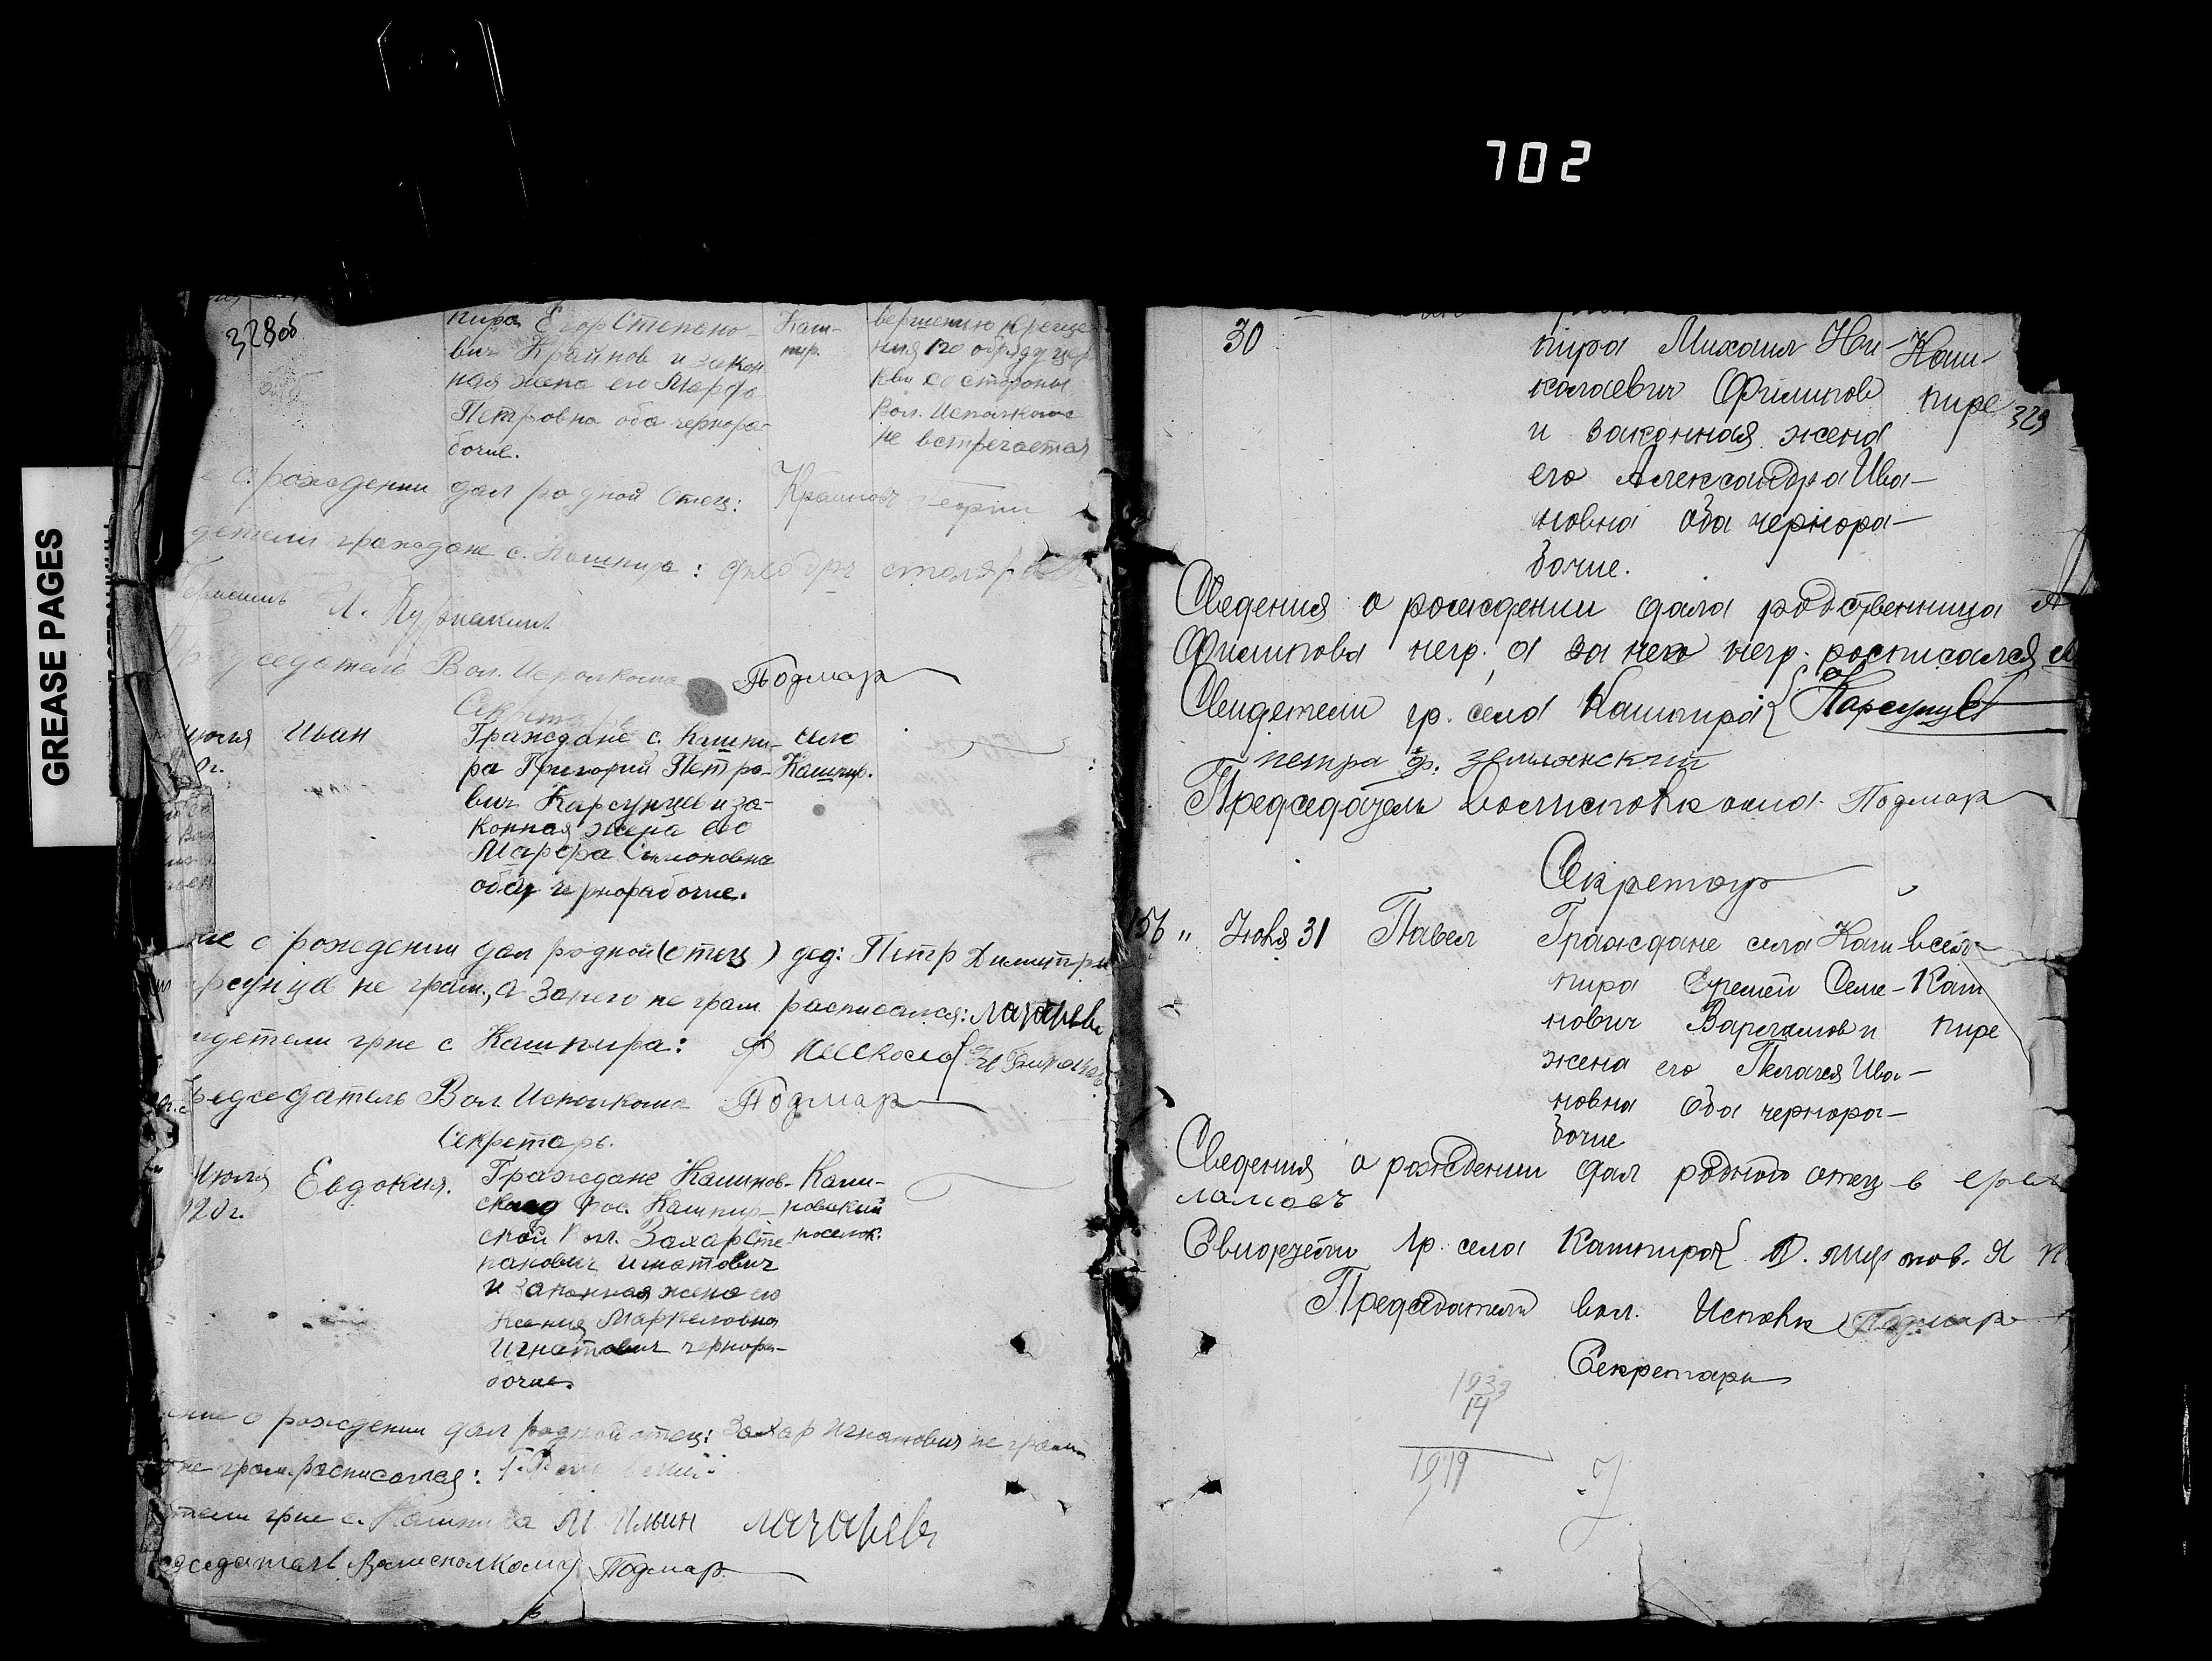 702
GREASE PAGES
328об
пира Егор Степано-
вич Крайнов и закон
ная жена его Марфа
Петровна оба чернора-
бочие.
Каш-
пир.
вершению креще
ния по обряду цер
кви со стороны
Вол. Исполкома
не встречается
о рождении дал родной отец: Крайновъ
детели граждане с. Кашпира: столяров
И. Курнакинъ
Председатель Вол. Исполкома Подмар
Секретарь
июля Иван
0г.
Граждане с. Кашпи-
ра Григорий Петро-
вич Карсунцев и за-
конная жена его
Марфа Симоновна
оба чернорабочие.
село
Кашпир.
ние о рождении дал родной (отец) дед: Петр Димитри
рсунцев не грам., а за него не грам. расписался: Лазарев
идетели гр-не с Кашпира:
Председатель Вол. Исполкома Подмар
Секретарь.
Июля Евдокия.
920г.
Граждане Кашнов-
ского пос. Кашпир-
ской Вол. Захар Сте-
панович Игнатович
и законная жена его
Ксения Маркеловна
Игнатович чернора-
бочие.
Каш-
новский
поселок.
ение о рождении дал родной отец: Захар Игнатович не грам.
не грам. расписался:
тели гр-не с. Кашпира М. Ильин Лазарев
едседатель Волисполкома Подмар
30
пира Михаил Ни-
колаевич Филипов
и законная жена
его Александра Ива-
новна оба чернора-
бочие.
Каш-
пире
329
Сведения о рождении дала родственница А
Филипова негр. а за нею негр. росписался
Свидетели гр. села Кашпира{ Карсунцев
петра ф. землянский
Председатель Волисполкома Подмар
Секретарь
156 " Июля 31 Павел
Граждане села Каш
пира Еремей Семе-
нович Варламов и
жена его Пелагея Ива-
новна оба чернора-
бочие
в селе
Каш
пире
Сведения о рождении дал родной отец в ере
ламовъ
Свидетели гр. села Кашпира{
Председатель вол. Исполк Подмар
Секретарь
1933
14
1919